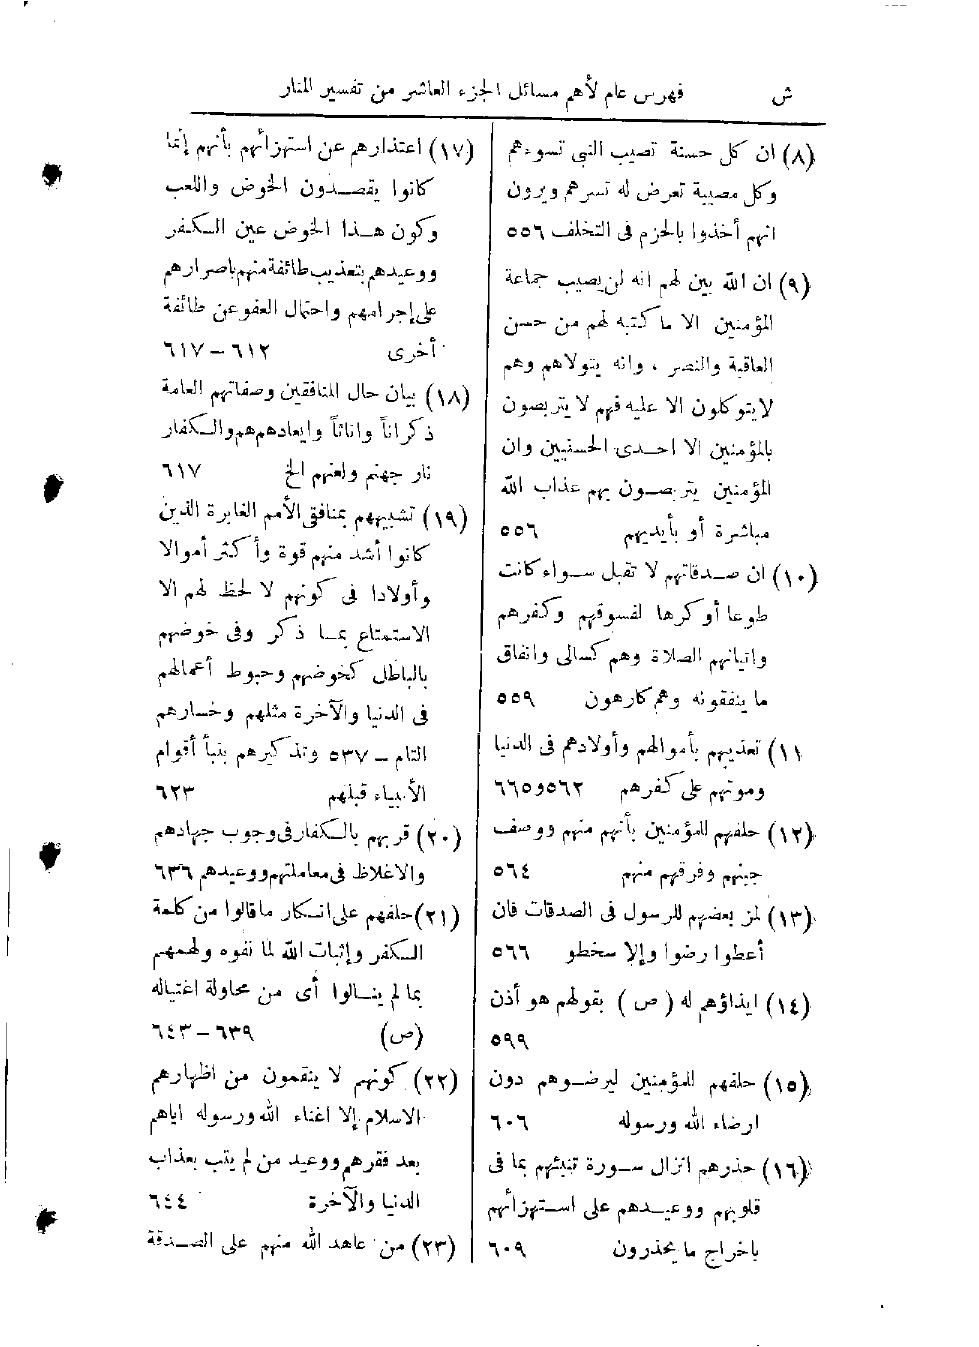 ش فهرس عام لأهم مسائل الجزء العاشر من تفسير المنار
(٨) ان كل حسنة تصيب النبي تسوءهم
وكل مصيبة تعرض له تسرهم ويرون
انهم أخذوا بالحزم فى التخلف ٥٥٦
(٩) ان الله بين لهم انه لن يصيب جماعة
المؤمنين الا ما كتبه لهم من حسن
العاقبة والنصر ، وانه يتولاهم وهم
لا يتوكلون الا عليه فهم لا يتربصون
بالمؤمنين الا احدى الحسنيين وان
المؤمنين يتربصون بهم عذاب الله
مباشرة أو بأيديهم ٥٥٦
(١٠) ان صدقاتهم لا تقبل سواء كانت
طوعا أو كرها لفسوقهم وكفرهم
واتيانهم الصلاة وهم كسالى وانفاق
ما ينفقونه وهم كارهون ٥٥٩
١١) تعذيبهم بأموالهم وأولادهم فى الدنيا
وموتهم على كفرهم ٥٦٢ و٦٦٥
(١٢) حلفهم للمؤمنين بأنهم منهم ووصف
جبنهم وفرقهم منهم ٥٦٤
(١٣) لمز بعضهم للرسول فى الصدقات فان
أعطوا رضوا وإلا سخطو ٥٦٦
(١٤) ايذاؤهم له ( ص ) بقولهم هو أذن
٥٩٩
(١٥) حلفهم للمؤمنين ليرضوهم دون
ارضاء الله ورسوله ٦٠٦
(١٦) حذرهم انزال سورة تنبئهم بما فى
قلوبهم ووعيدهم على استهزائهم
باخراج ما يحذرون ٦٠٩
(١٧) اعتذارهم عن استهزائهم بأنهم إنما
كانوا يقصدون الخوض واللعب
وكون هذا الخوض عين الكفر
ووعيدهم بتعذيب طائفة منهم باصرارهم
على إجرامهم واحتمال العفو عن طائفة
أخرى ٦١٢ – ٦١٧
(١٨) بيان حال المنافقين وصفاتهم العامة
ذكراناً واناثاً وايعادهم هم والكفار
نار جهنم ولعنهم الخ ٦١٧
(١٩) تشبيههم بمنافقى الأمم الغابرة الذين
كانوا أشد منهم قوة وأكثر أموالا
وأولادا فى كونهم لا لحظ لهم الا
الاستمتاع بما ذكر وفى خوضهم
بالباطل كخوضهم وحبوط أعمالهم
فى الدنيا والآخرة مثلهم وخسارهم
التام – ٥٣٧ وتذكيرهم بنبأ أقوام
الأنبياء قبلهم ٦٢٣
(٢٠) قربهم بالكفار فى وجوب جهادهم
والاغلاظ فى معاملتهم ووعيدهم ٦٣٦
(٢١) حلفهم على انكار ما قالوا من كلمة
الكفر وإثبات الله لما نفوه ولهمهم
بما لم ينالوا أى من محاولة اغتياله
(ص) ٦٣٩ – ٦٤٣
(٢٢) كونهم لا ينقمون من اظهارهم
الاسلام إلا اغناء الله ورسوله اياهم
بعد فقرهم ووعيد من لم يتب بعذاب
الدنيا والآخرة ٦٤٤
(٢٣) من عاهد الله منهم على الصدقة